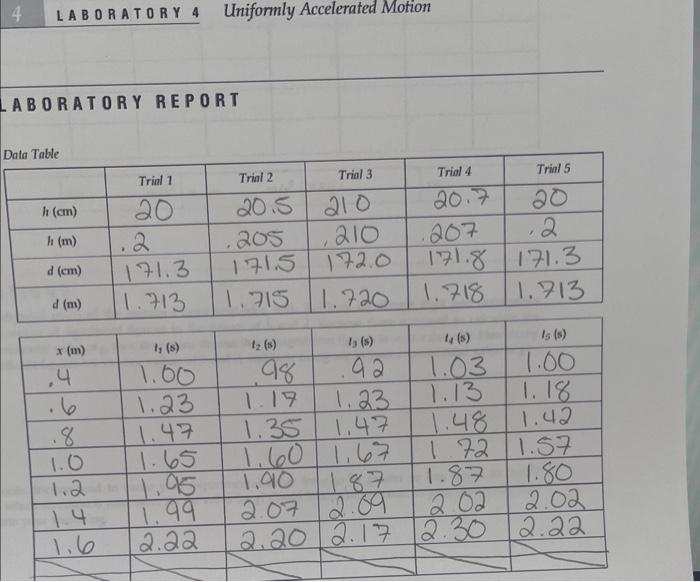 4 LABORATORY 4 Uniformly Accelerated Motion
LABORATORY REPORT
Data Table
Trial 1 Trial 2 Trial 3 Trial 4 Trial 5
h (cm) 20 20.5 210 20.7 20
h (m) .2 .205 .210 .207 .2
d (cm) 171.3 171.5 172.0 171.8 171.3
d (m) 1.713 1.715 1.720 1.718 1.713
x (m) t₁ (s) t₂ (s) t₃ (s) t₄ (s) t₅ (s)
.4 1.00 .98 .92 1.03 1.00
.6 1.23 1.17 1.23 1.13 1.18
.8 1.47 1.35 1.47 1.48 1.42
1.0 1.65 1.60 1.67 1.72 1.57
1.2 1.95 1.90 1.87 1.87 1.80
1.4 1.99 2.07 2.09 2.02 2.02
1.6 2.22 2.20 2.17 2.30 2.22